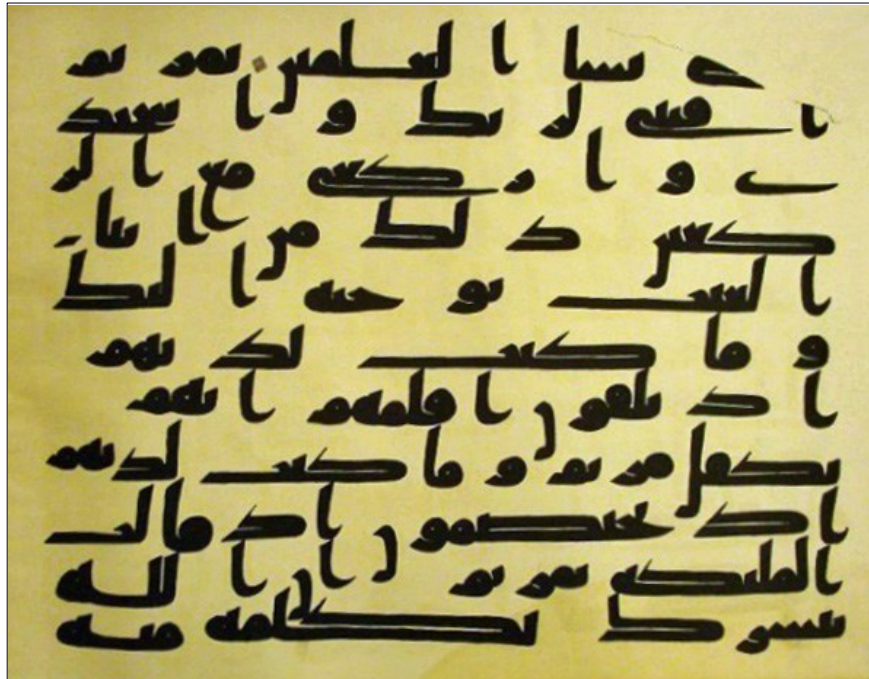 نسا العلمين يمريم
اقنتى لربك واسجد
ى واركعى مع الر
كعين ذلك من انبا
الغيب نوحيه اليك
وما كنت لديهم
اذ يلقون اقلمهم ايهم
يكفل مريم وما كنت لديهم
اذ يختصمون اذ قالت
المليكه يمريم ان الله
يبشرك بكلمه منه